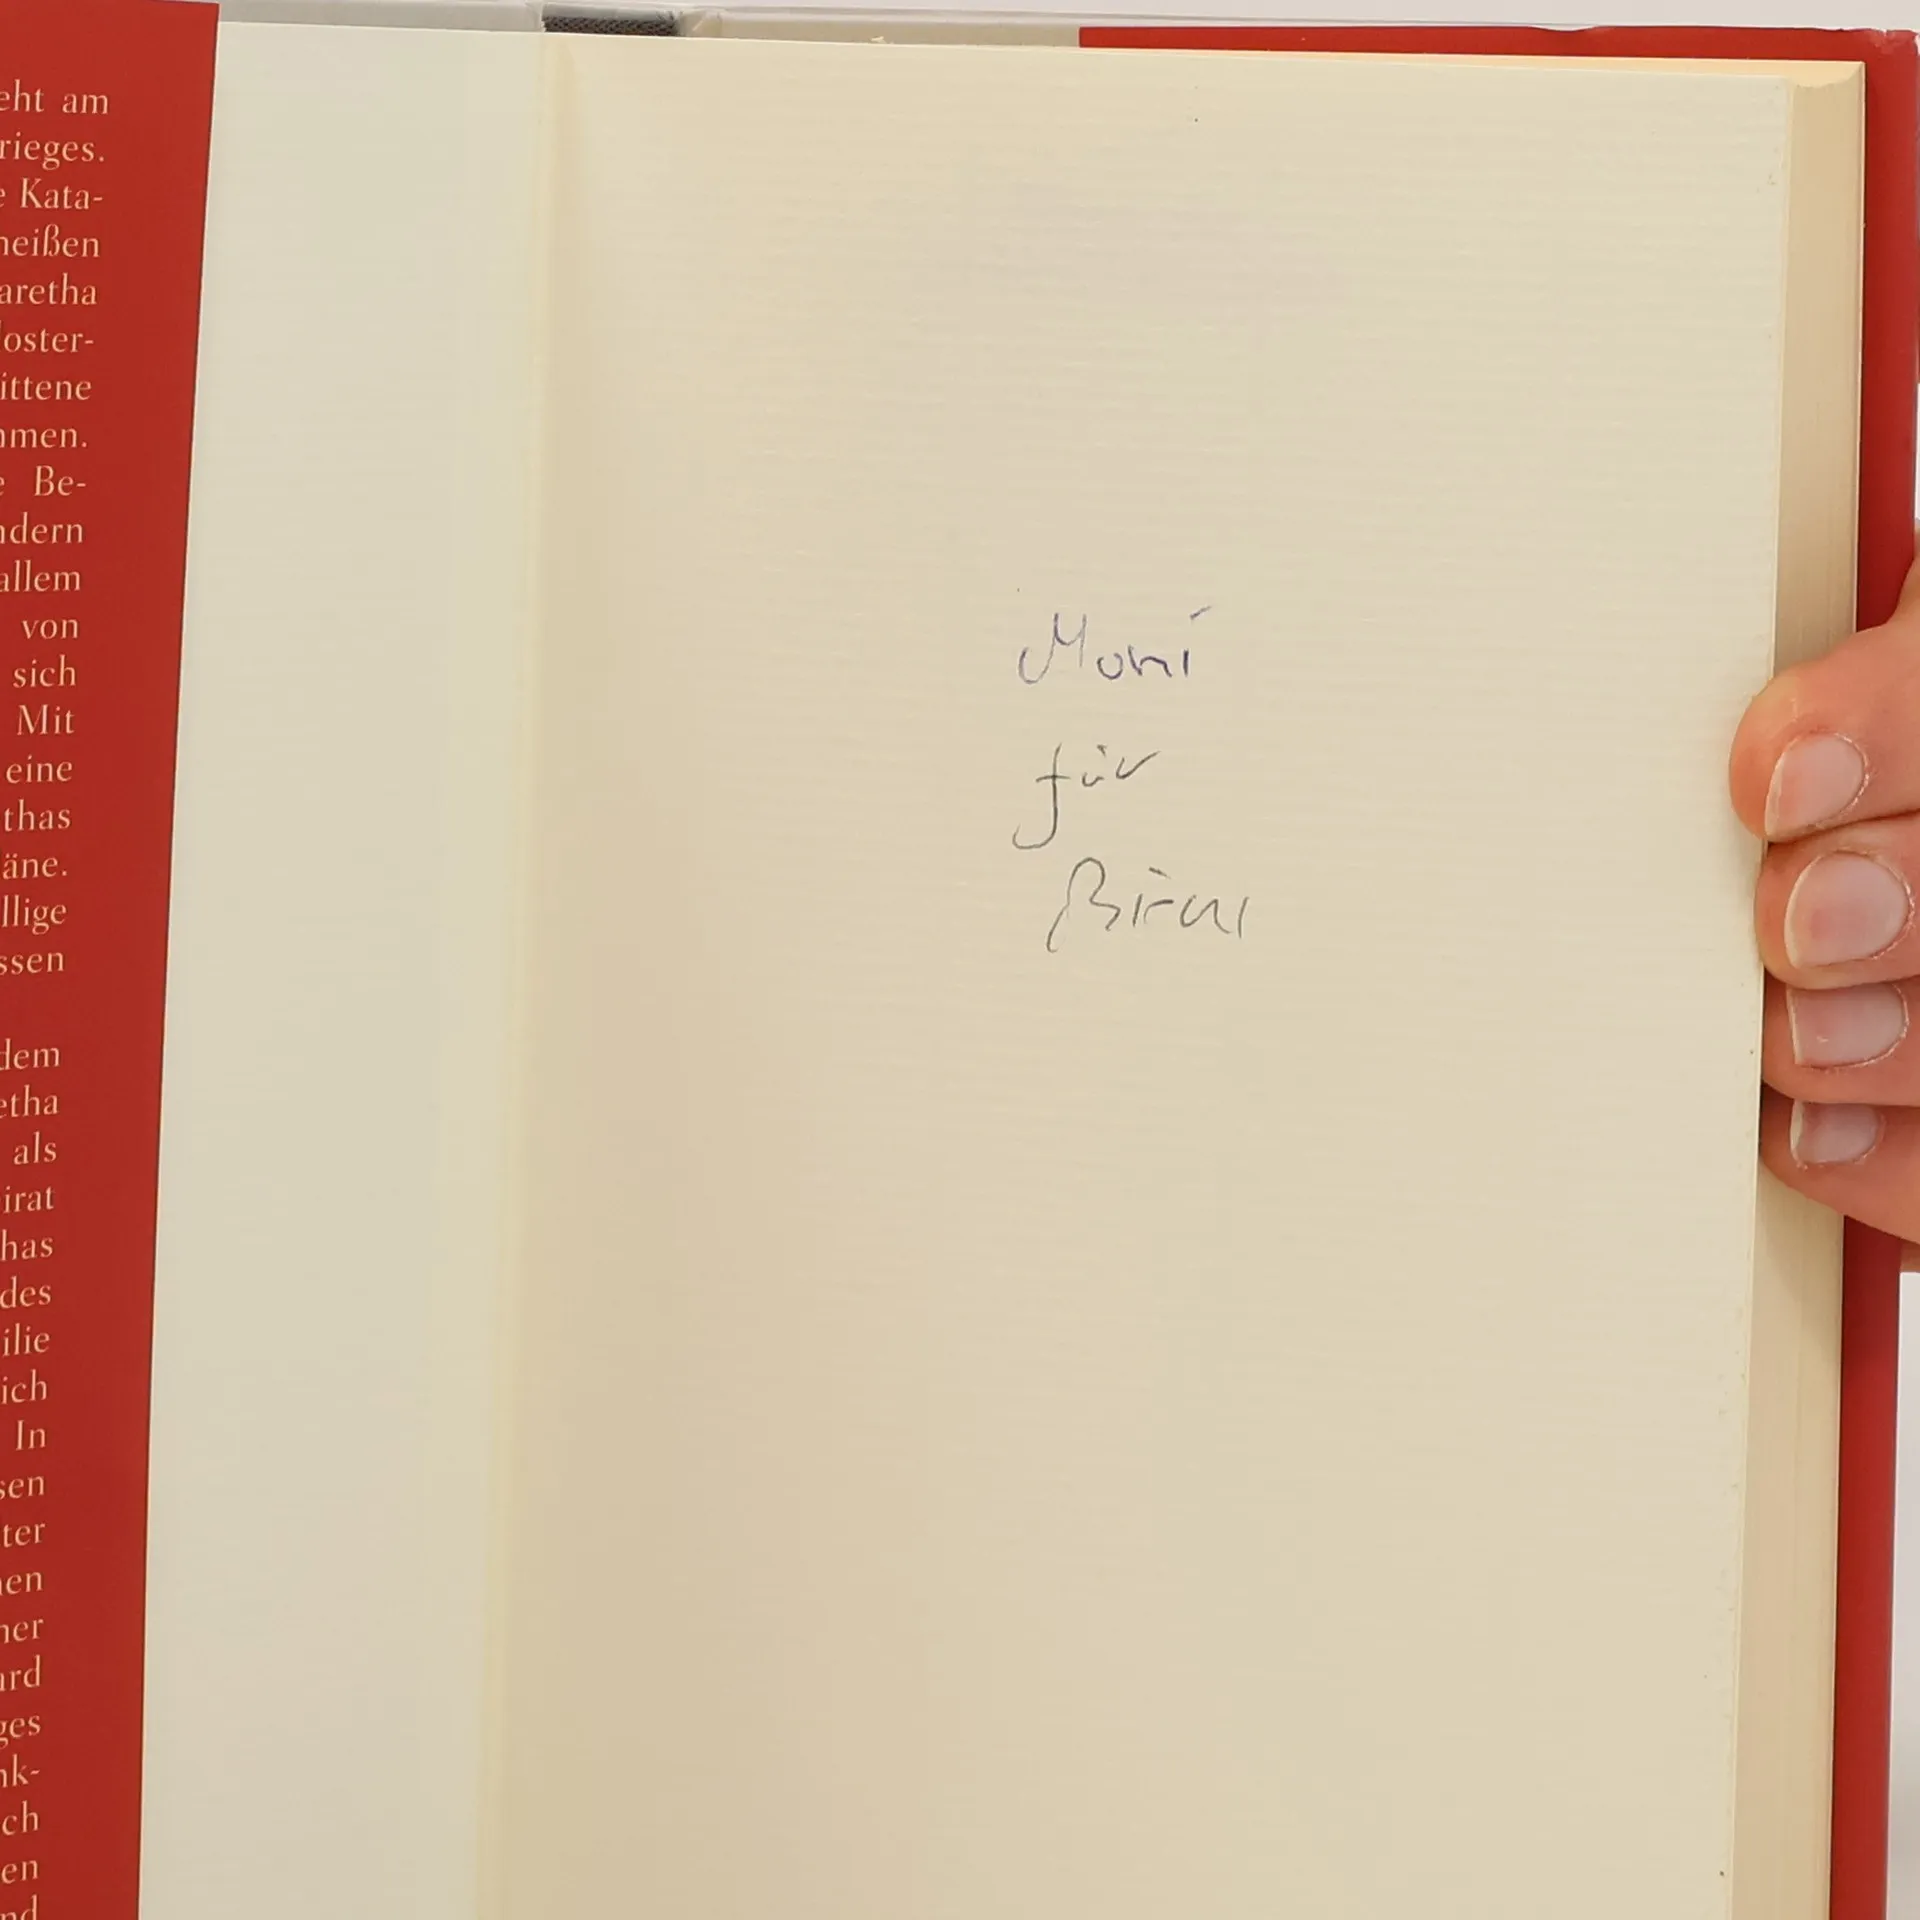 eht am
rieges.
e Kata-
heißen
aretha
loster-
ittene
mmen.
e Be-
ndern
allem
von
sich
Mit
eine
thas
äne.
llige
ssen
dem
etha
als
irat
has
des
ilie
ich
In
sen
ter
nen
ner
ard
ges
nk-
ch
en
nd
Moni
für